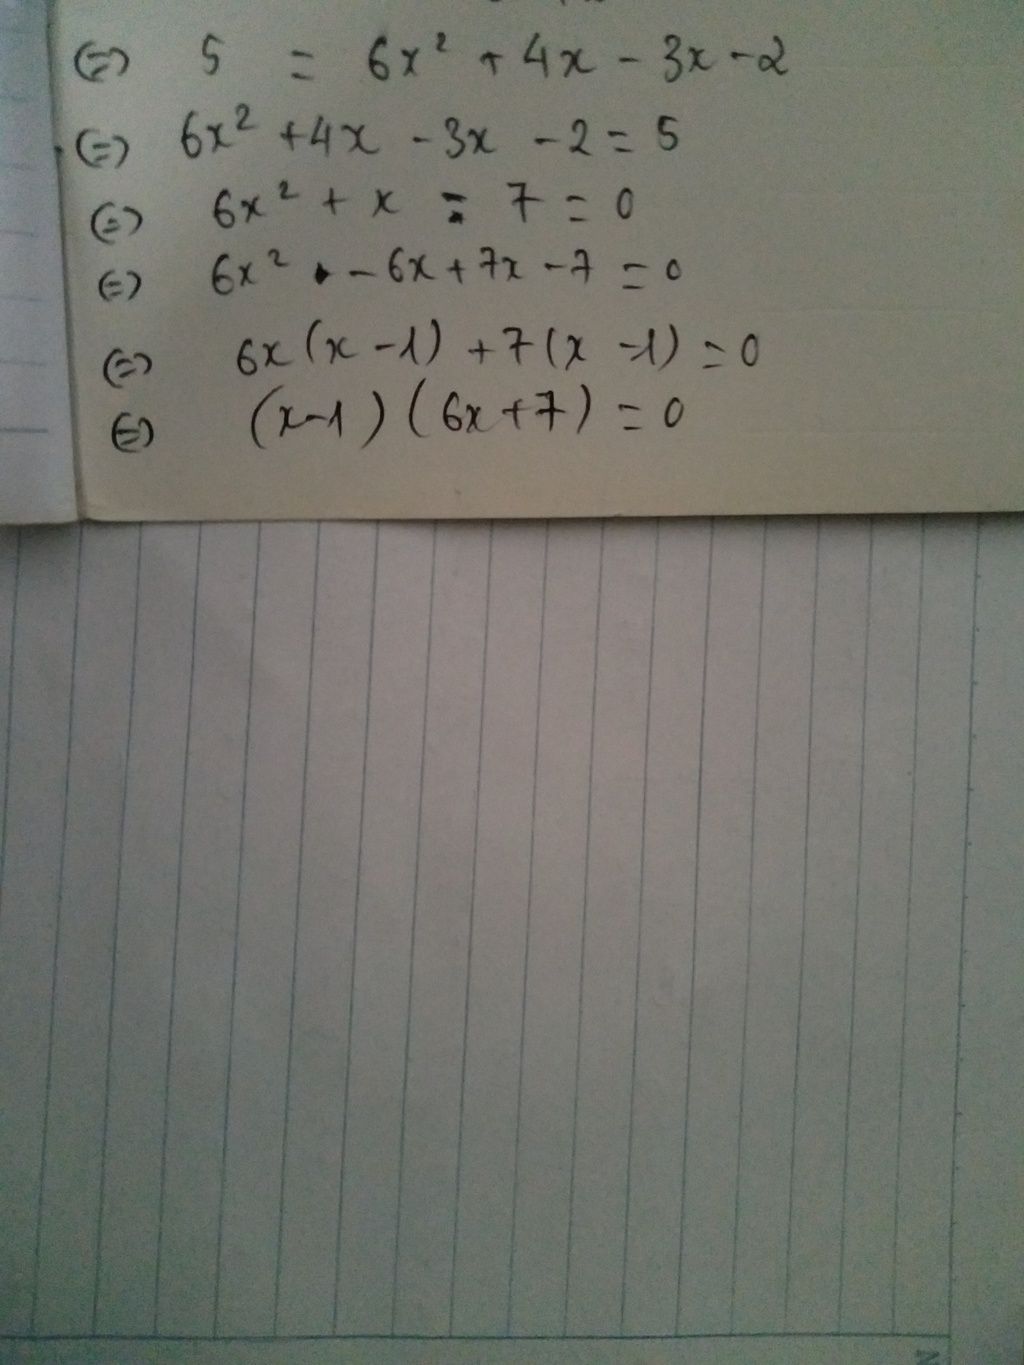 (=) 5 = 6x² + 4x - 3x - 2
(=) 6x² + 4x - 3x - 2 = 5
(=) 6x² + x - 7 = 0
(=) 6x² - 6x + 7x - 7 = 0
(=) 6x (x - 1) + 7 (x - 1) = 0
(=) (x-1) (6x+7) = 0